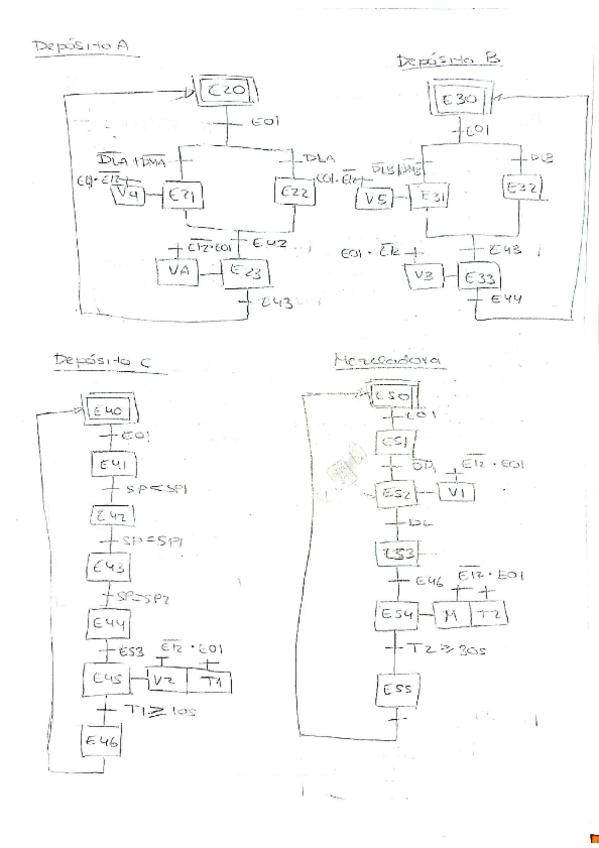 Depósito A
E20
E01
D̅L̅A̅ + D̅M̅A̅
DLA
E01 · E̅1̅2̅
V4
E21
E22
E42
E̅1̅2̅ · E01
VA
E23
E43
Depósito B
E30
E01
DLB
E01 · E̅1̅2̅
V5
E31
E32
E43
E01 · E̅1̅2̅
V3
E33
E44
Depósito C
E40
E01
E41
SP<SP1
E42
SP=SP1
E43
SP=SP2
E44
E53
E̅1̅2̅ · E01
E45
V2
T1
T1 ≥ 10s
E46
Mezcladora
E50
E01
E51
D̅M̅
E̅1̅2̅ · E01
E52
V1
DL
E53
E46
E̅1̅2̅ · E01
E54
M
T2
T2 ≥ 30s
E55